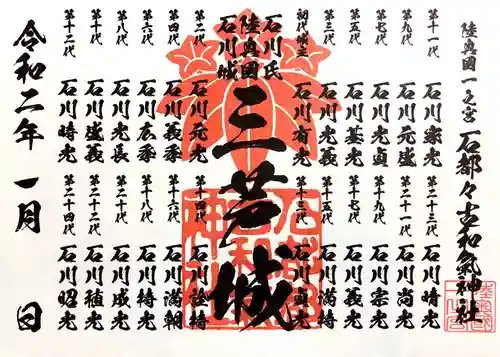 陸奥國一之宮 石都々古和氣神社
第十一代 石川家光
第九代 石川元盛
第七代 石川光貞
第五代 石川基光
第三代 石川光義
初代城主 石川有光
石川氏
三芦城
陸奥國
石川城
第二代 石川元光
第四代 石川義季
第六代 石川広季
第八代 石川光長
第十代 石川盛義
第十二代 石川時光
第二十三代 石川晴光
第二十一代 石川尚光
第十九代 石川宗光
第十七代 石川義光
第十五代 石川満持
第十三代 石川貞光
第十四代 石川詮持
第十六代 石川満朝
第十八代 石川持光
第二十代 石川成光
第二十二代 石川稙光
第二十四代 石川昭光
令和二年 一月 日